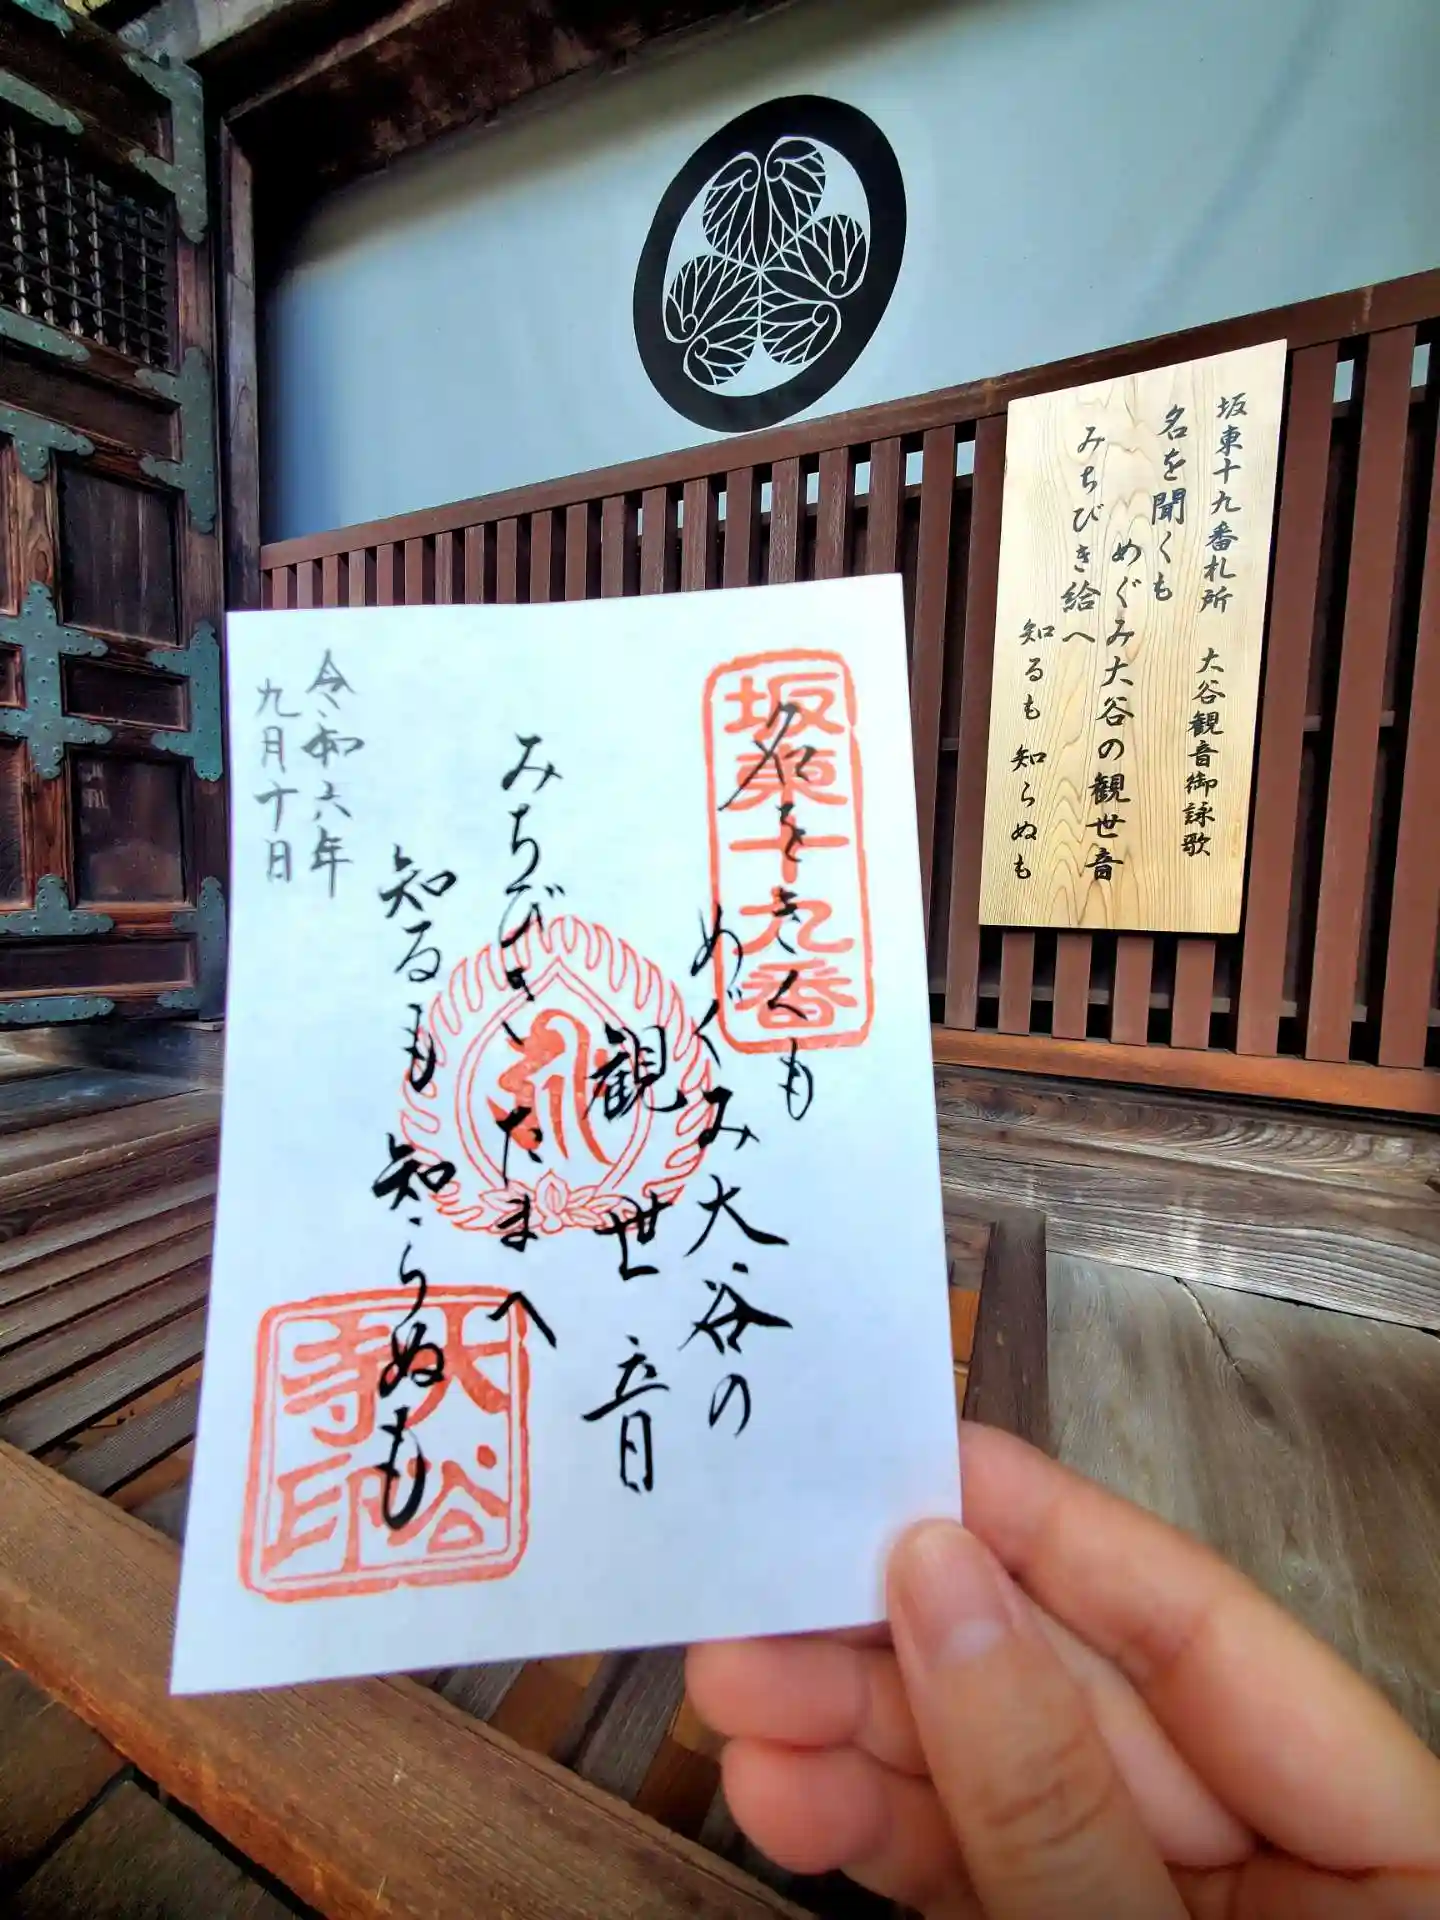 坂東十九番札所　大谷観音御詠歌
名を聞くも
めぐみ大谷の観世音
みちびき給へ
知るも知らぬも
坂東十九番
名をきくも
めぐみ大谷の
観世音
みちびきたまへ
知るも知らぬも
令和六年
九月十日
大谷
寺印